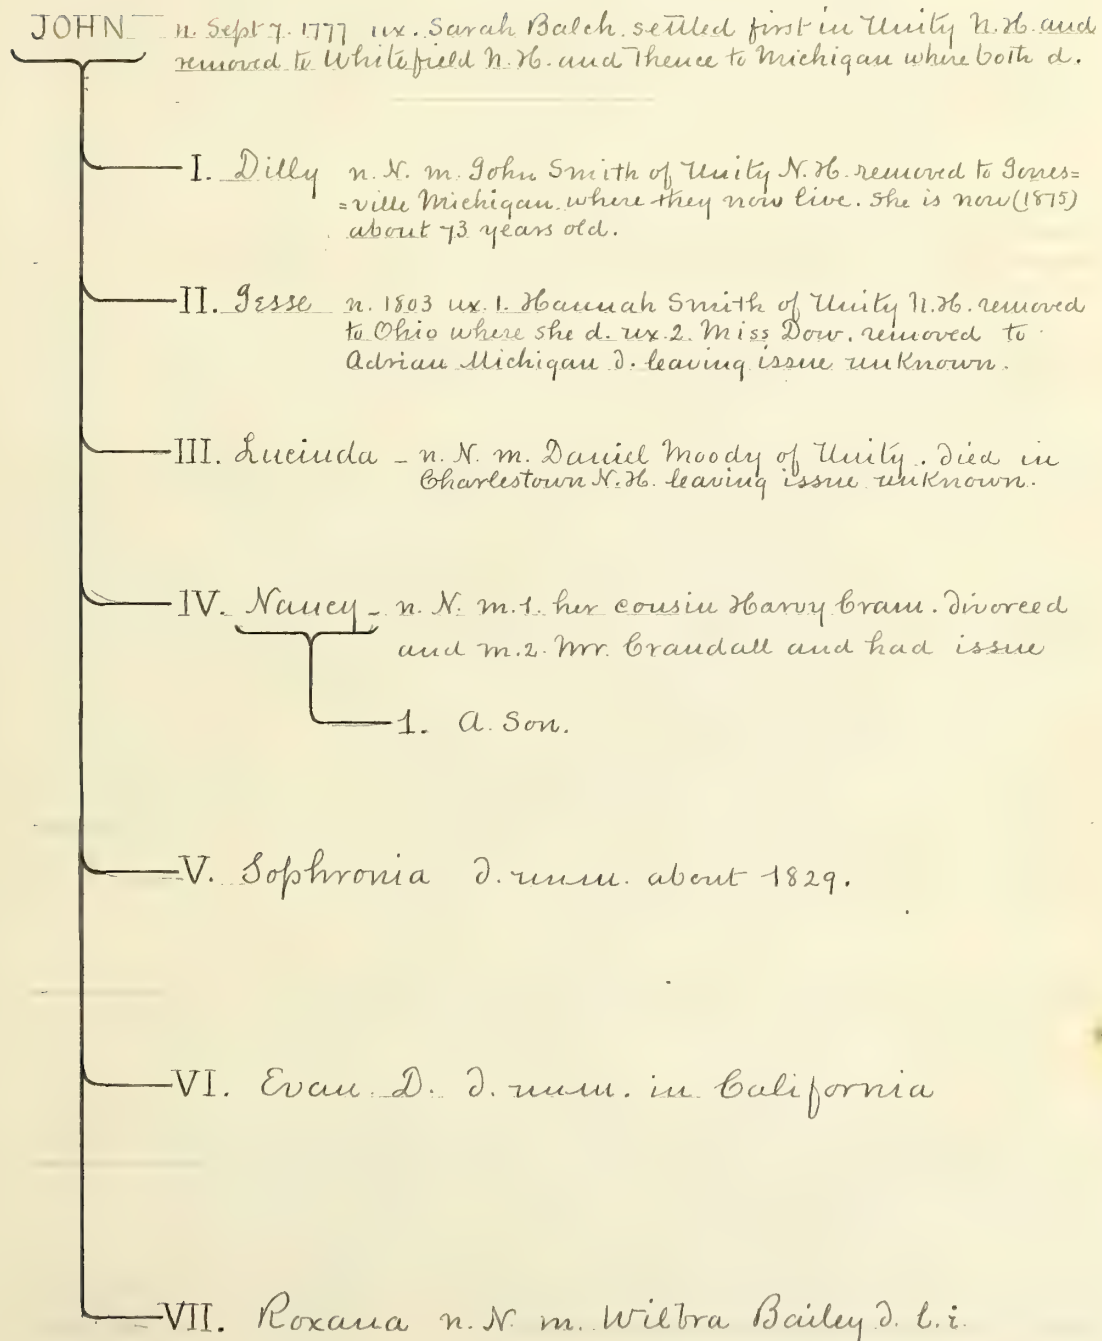 JOHN n. Sept 7. 1777 ux. Sarah Balch. settled first in Unity N.H. and
removed to Whitefield N.H. and Thence to Michigan where both d.
I. Dilly n. N. m. John Smith of Unity N.H. removed to Jones=
=ville Michigan where they now live. She is now (1875)
about 73 years old.
II. Jesse n. 1803 ux. 1. Hannah Smith of Unity N.H. removed
to Ohio where she d. ux. 2. Miss Dow. removed to
Adrian Michigan d. leaving issue unknown.
III. Lucinda - n. N. m. Daniel Moody of Unity. Died in
Charlestown N.H. leaving issue unknown.
IV. Nancy - n. N. m. 1. her cousin Harvy Cram. divorced
and m. 2. Mr. Crandall and had issue
1. A. Son.
V. Sophronia d. unm. about 1829.
VI. Evan. D. d. unm. in California
VII. Roxana n. N. m. Wilbra Bailey d. l. i.